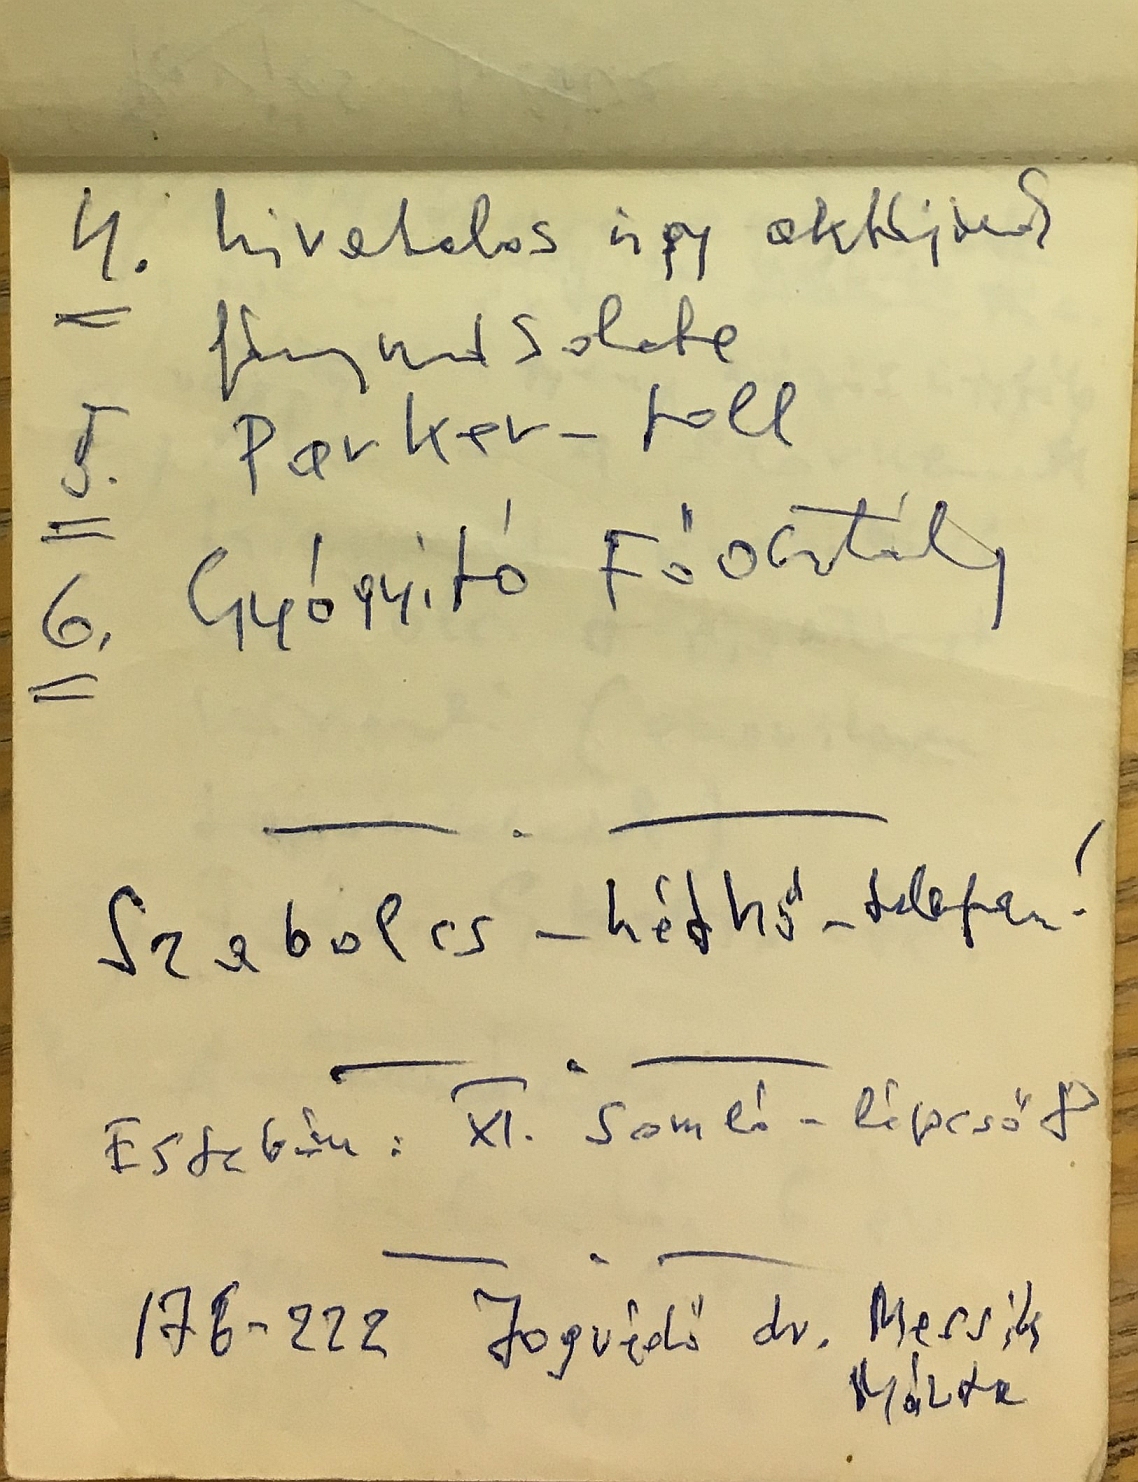 4. hivatalos ügy aktájának
fénymásolata
5. Parker-toll
6. Gyógyító Főosztály
Szabolcs - hétfő - telefon!
Eszébán: XI. Somlói-lépcső 7
176-222 Jogvédő dr. Messik
Márta